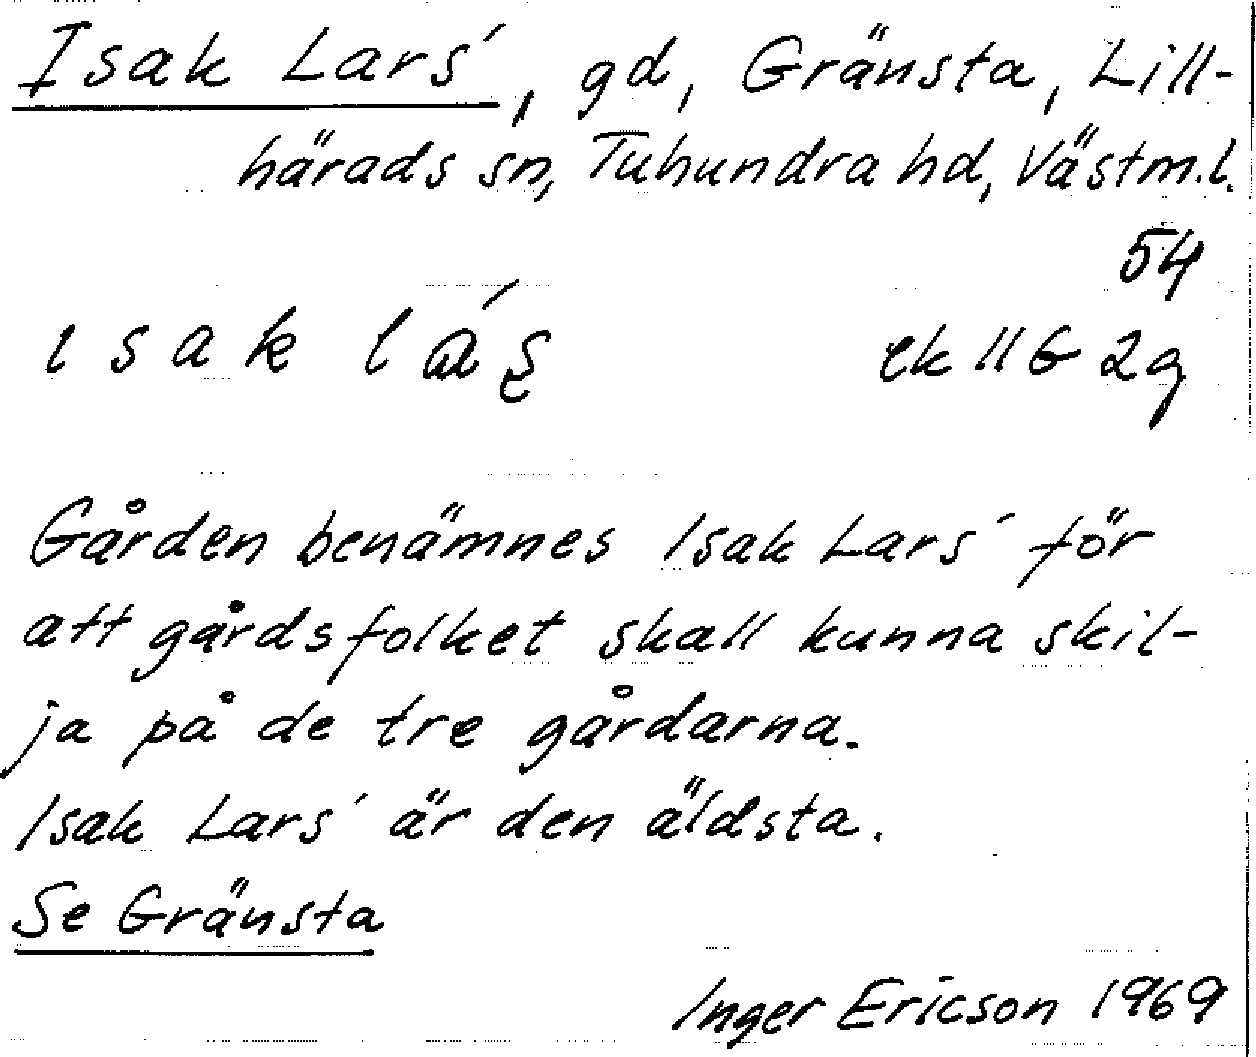 Isak Lars', gd, Gränsta, Lill-
härads sn, Tuhundra hd, Västm.l.
54
ısak lás̨ ek 11G 2g
Gården benämnes Isak Lars' för
att gårdsfolket skall kunna skil-
ja på de tre gårdarna.
Isak Lars' är den äldsta.
Se Gränsta
Inger Ericson 1969